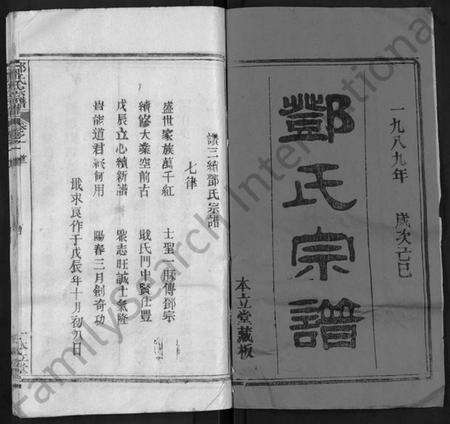 一九八九年 歲次己巳
鄧氏宗譜
本立堂藏板
讀三續鄧氏宗譜
七律
盛世家族萬千紅 士聖一脈傳鄧宗
續修大業空前古 戢氏門中賢仕豐
戊辰立心續新譜 眾志旺誠士氣隆
貴能道君 何用 陽春三月創奇功
戢求良作于戊辰年十月初九日
FamilySearch International